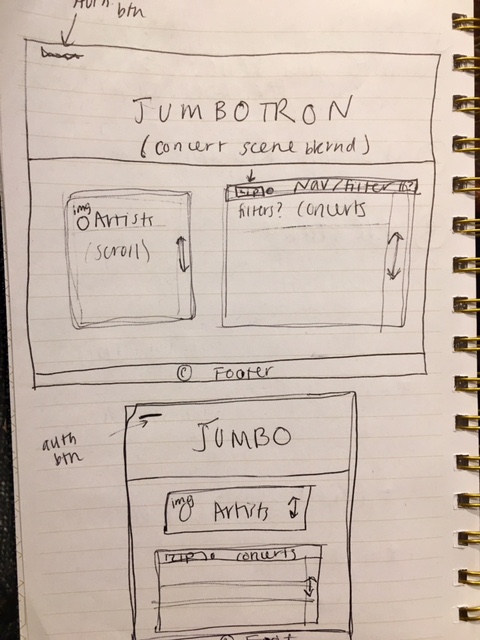 Auth
btn
JUMBOTRON
(concert scene blernd)
zip Nav/Filter
img
Artists
filters? concerts
(scroll)
© Footer
auth
btn
JUMBO
img
Artists
zip concerts
© Foot